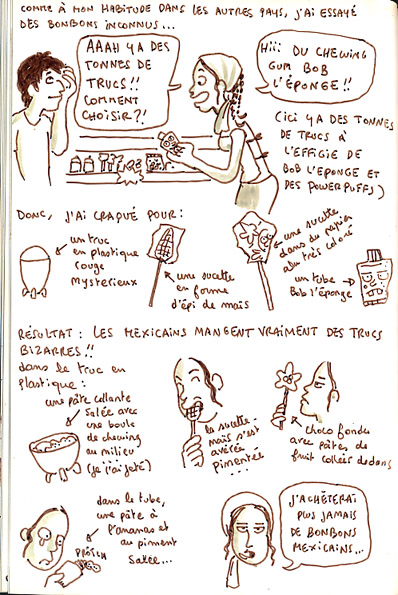 COMME À MON HABITUDE DANS LES AUTRES PAYS, J'AI ESSAYÉ
DES BONBONS INCONNUS...
AAAH YA DES
TONNES DE
TRUCS!!
COMMENT
CHOISIR?!
Hiii DU CHEWING
GUM BOB
L'ÉPONGE!!
(ICI YA DES TONNES
DE TRUCS À
L'EFFIGIE DE
BOB L'EPONGE ET
DES POWERPUFFS)
DONC, J'AI CRAQUÉ POUR:
un truc
en plastique
rouge
mysterieux
une sucette
en forme
d'épi de maïs
une sucette
dans du papier
alu très coloré
un tube
Bob l'éponge
RÉSULTAT: LES MEXICAINS MANGENT VRAIMENT DES TRUCS
BIZARRES!!
dans le truc en
plastique:
une pâte collante
salée avec
une boule
de chewing
au milieu
(je l'ai jeté)
la sucette
maïs s'est
avérée
pimentée
...
choco fondu
avec pâtes de
fruit collées dedans
dans le tube,
une pâte à
l'ananas et
au piment
salée...
PRÔTCH
J'ACHÈTERAI
PLUS JAMAIS
DE BONBONS
MEXICAINS...